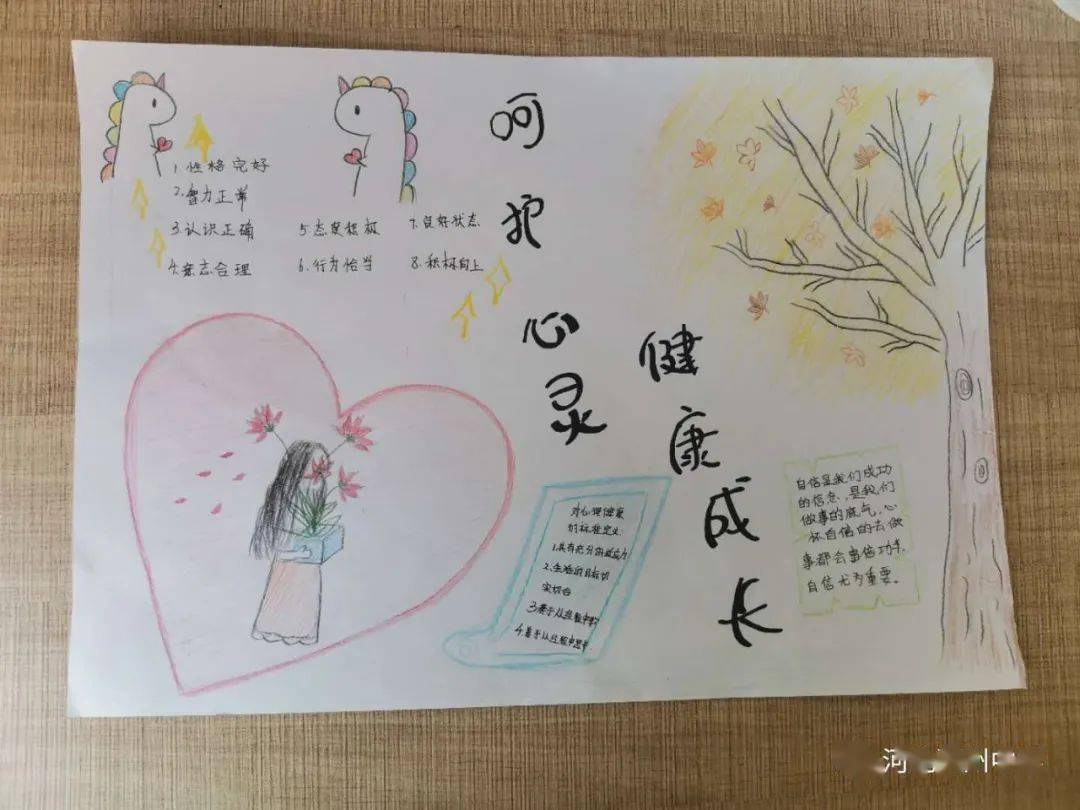 呵护心灵
健康成长
1.性格完好
2.智力正常
3.认识正确
4.意志合理
5.态度积极
6.行为恰当
7.良好状态
8.积极向上
对心理健康
的标准定义
1.具有充分的适应力
2.生活的目标切
实切合
3.善于从经验中学
4.善于从经验中
自信是我们成功
的信念,是我们
做事的底气,心
怀自信的去做
事都会事倍功半
自信尤为重要。
河